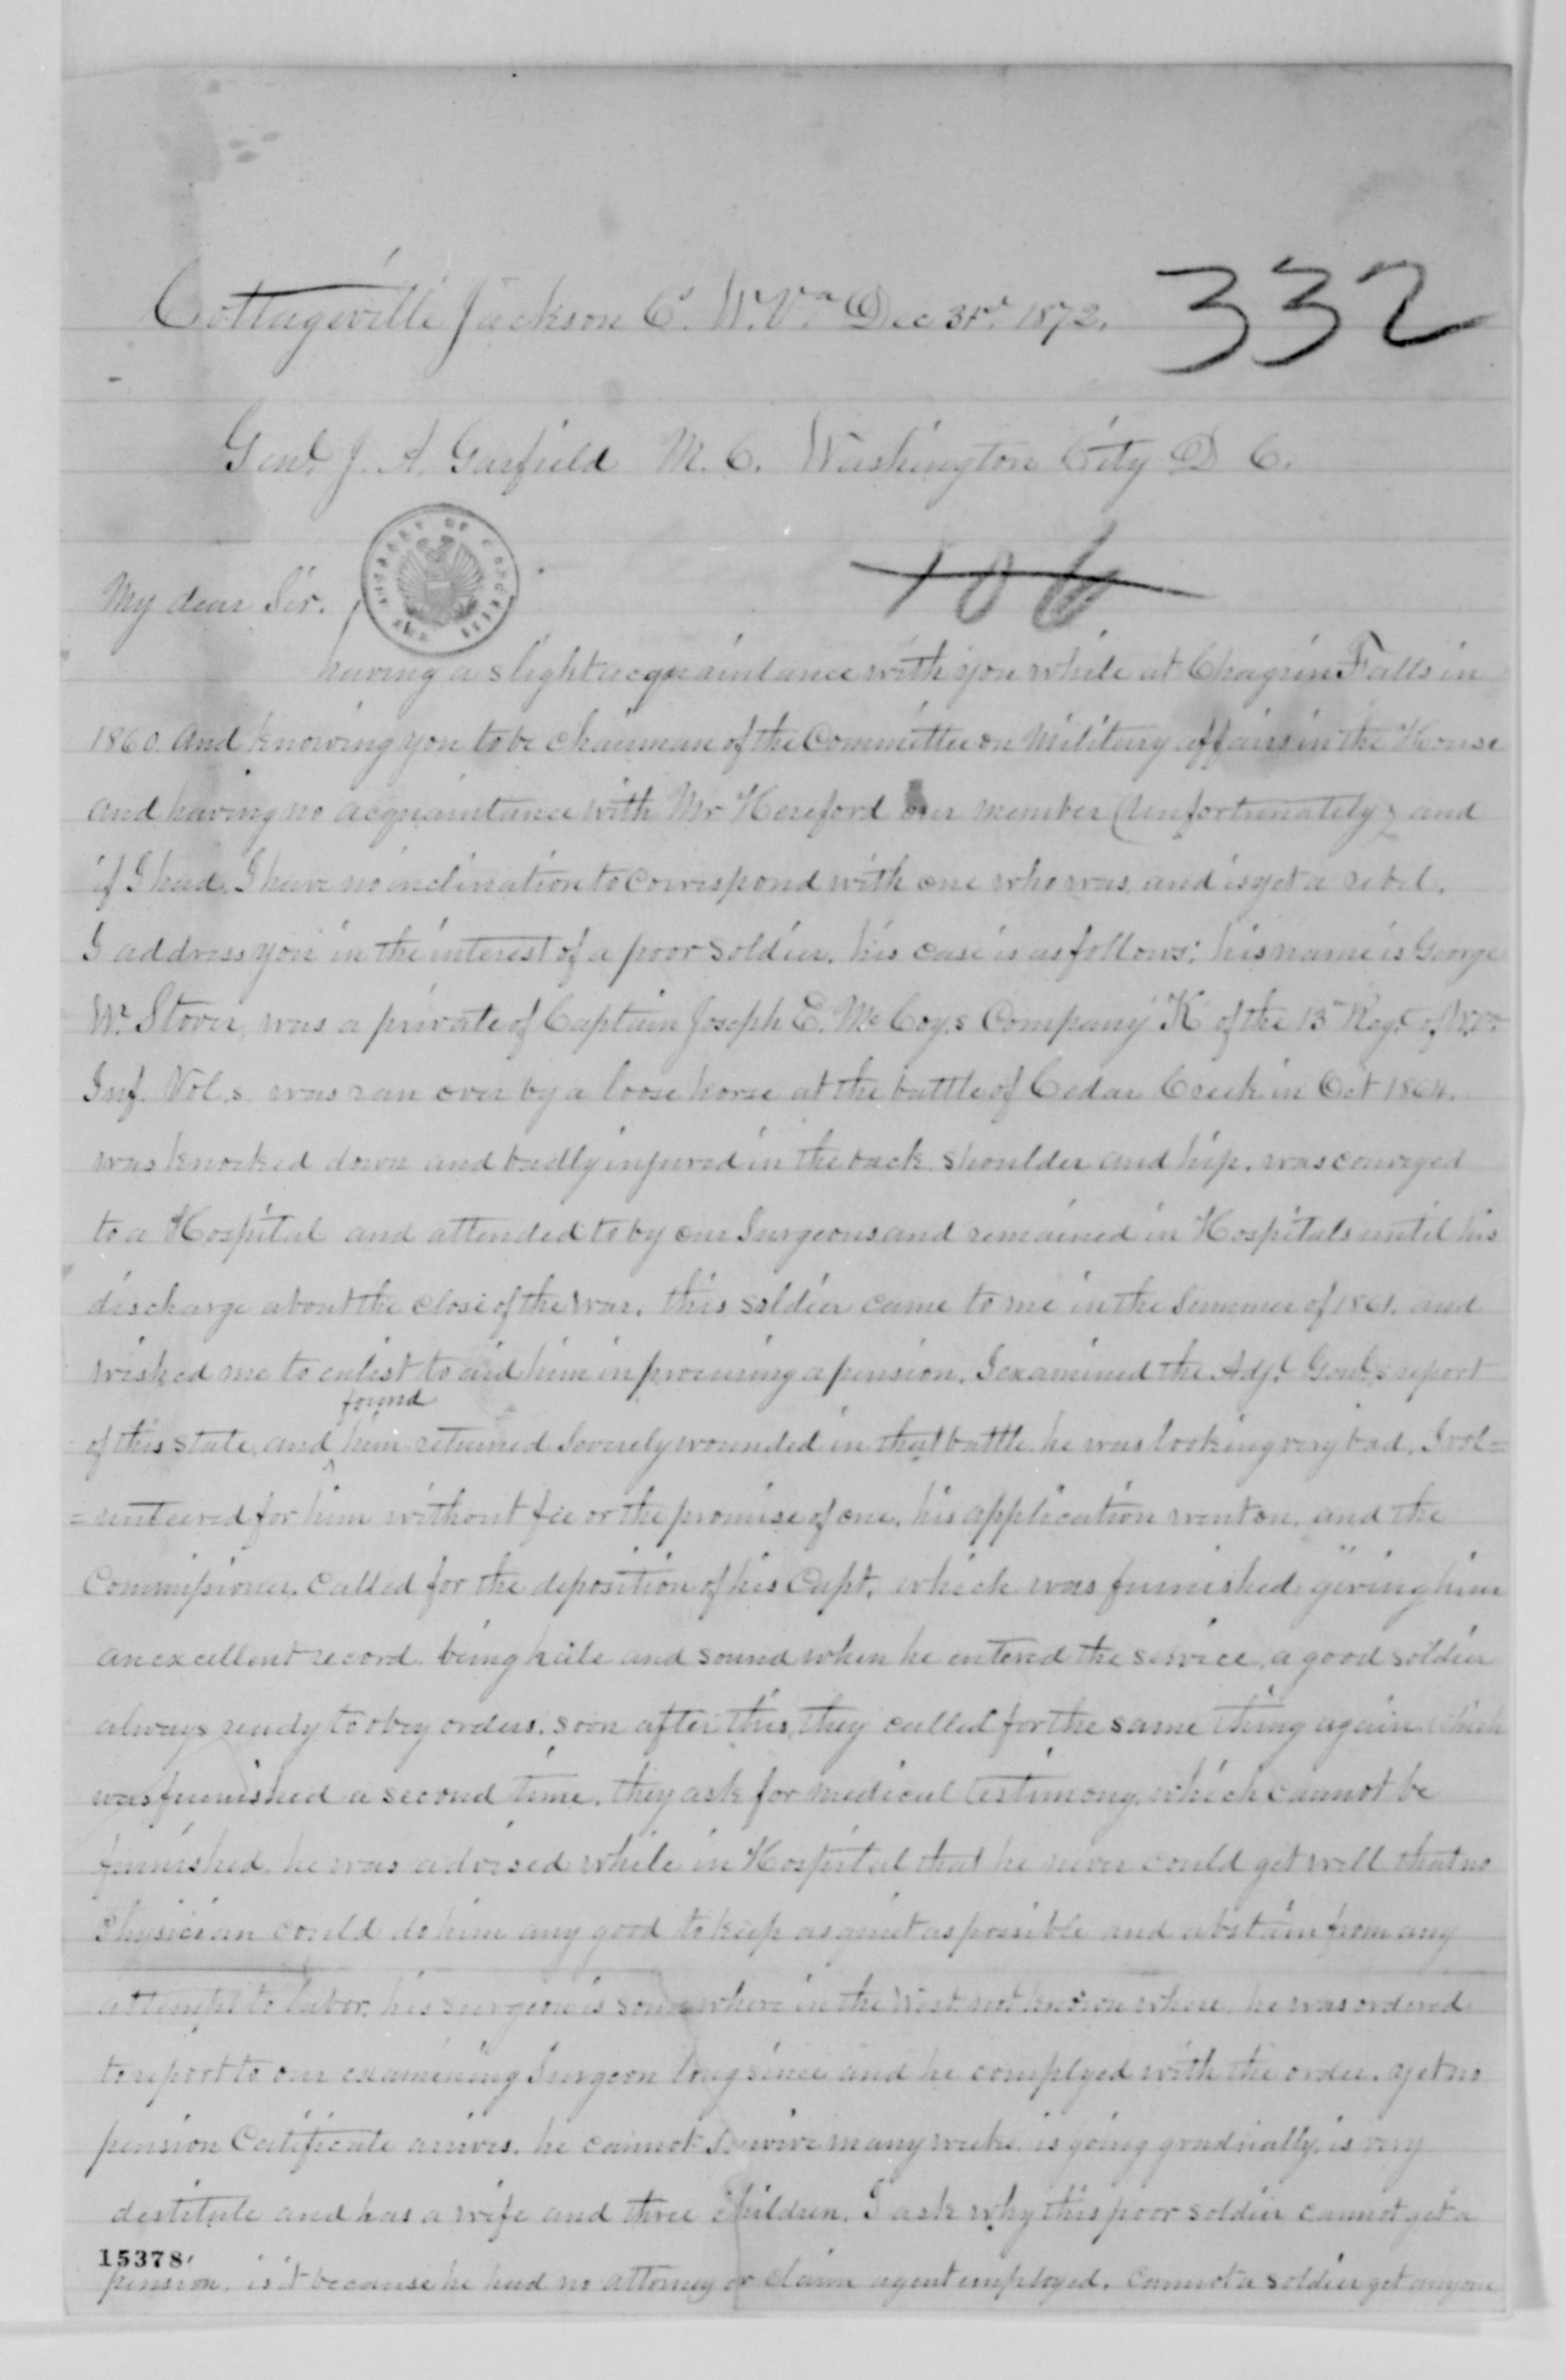 Cottageville Jackson Co. W. Va Dec 31st 1872.
332
Genl. J. A. Garfield M. C. Washington City D C.
LIBRARY OF CONGRESS
106
My dear Sir.
having a slight acquaintance with you while at Chagrin Falls in
1860 and knowing you to be chairman of the Committee on Military affairs in the House
and having no acquaintance with Mr Hereford our member (Unfortunately) and
if I had, I have no inclination to correspond with one who was and is yet a rebel.
I address you in the interest of a poor soldier. his case is as follows: his name is George
W. Stover, was a private of Captain Joseph E. McCoy,s Company K of the 13th Regt. of W. Va
Inf. Vol,s. was ran over by a loose horse at the battle of Cedar Creek in Oct 1864.
was knocked down and badly injured in the back shoulder and hip. was conveyed
to a Hospital and attended to by our Surgeons and remained in Hospitals until his
discharge about the close of the War. this soldier came to me in the Summer of and
wished me to enlist to aid him in procuring a pension. I examined the Adjt. Genl,s report
found
of this state, and him returned Severely wounded in that battle. he was looking very bad. I vol=
=unteered for him without fee or the promise of one. his application went on. and the
Commissioner, called for the deposition of his Capt. which was furnished giving him
an excellent record being hale and sound when he entered the service, a good soldier
always ready to obey orders. soon after this, they called for the same thing again which
was furnished a second time. they ask for medical testimony. which cannot be
furnished. he was advised while in Hospital that he never could get well that no
Physician could do him any good to keep as quiet as possible and abstain from any
attempt to labor. his surgeon is somewhere in the West not known where. he was ordered
to report to our examining Surgeon long since and he complyed with the order. yet no
pension Certificate arrives. he cannot survive many weeks. is going gradually. is very
destitute and has a wife and three children. I ask why this poor soldier cannot get a
15378
pension. is it because he had no attorney or claim agent employed. Cannot a soldier get anyone